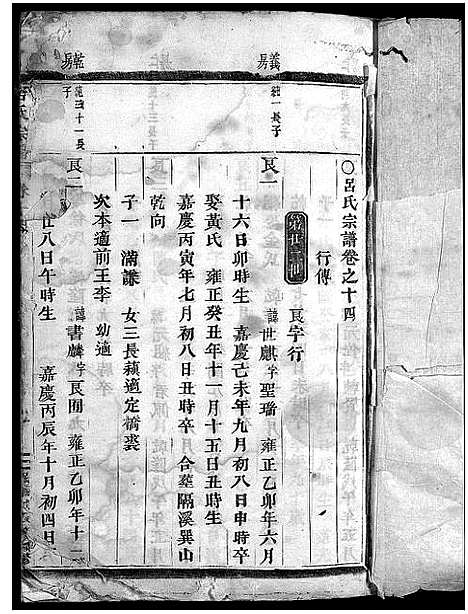 〇呂氏宗譜卷之十四
行傳
第廿三世
艮字行
義房
純一長子
艮一
諱世麒字聖瑞
雍正乙卯年六月
十六日卯時生
嘉慶己未年九月初八日申時卒
娶黃氏
雍正癸丑年十一月十五日丑時生
嘉慶丙寅年七月初八日丑時卒
合塟隔溪巽山
乾向
子一
滿謙
女三長蘋適定橋裘
次本適前王李
幼適
乾房
艮二
諱書麟字艮圃
雍正乙卯年十二
廿八日午時生
嘉慶丙辰年十月初四日